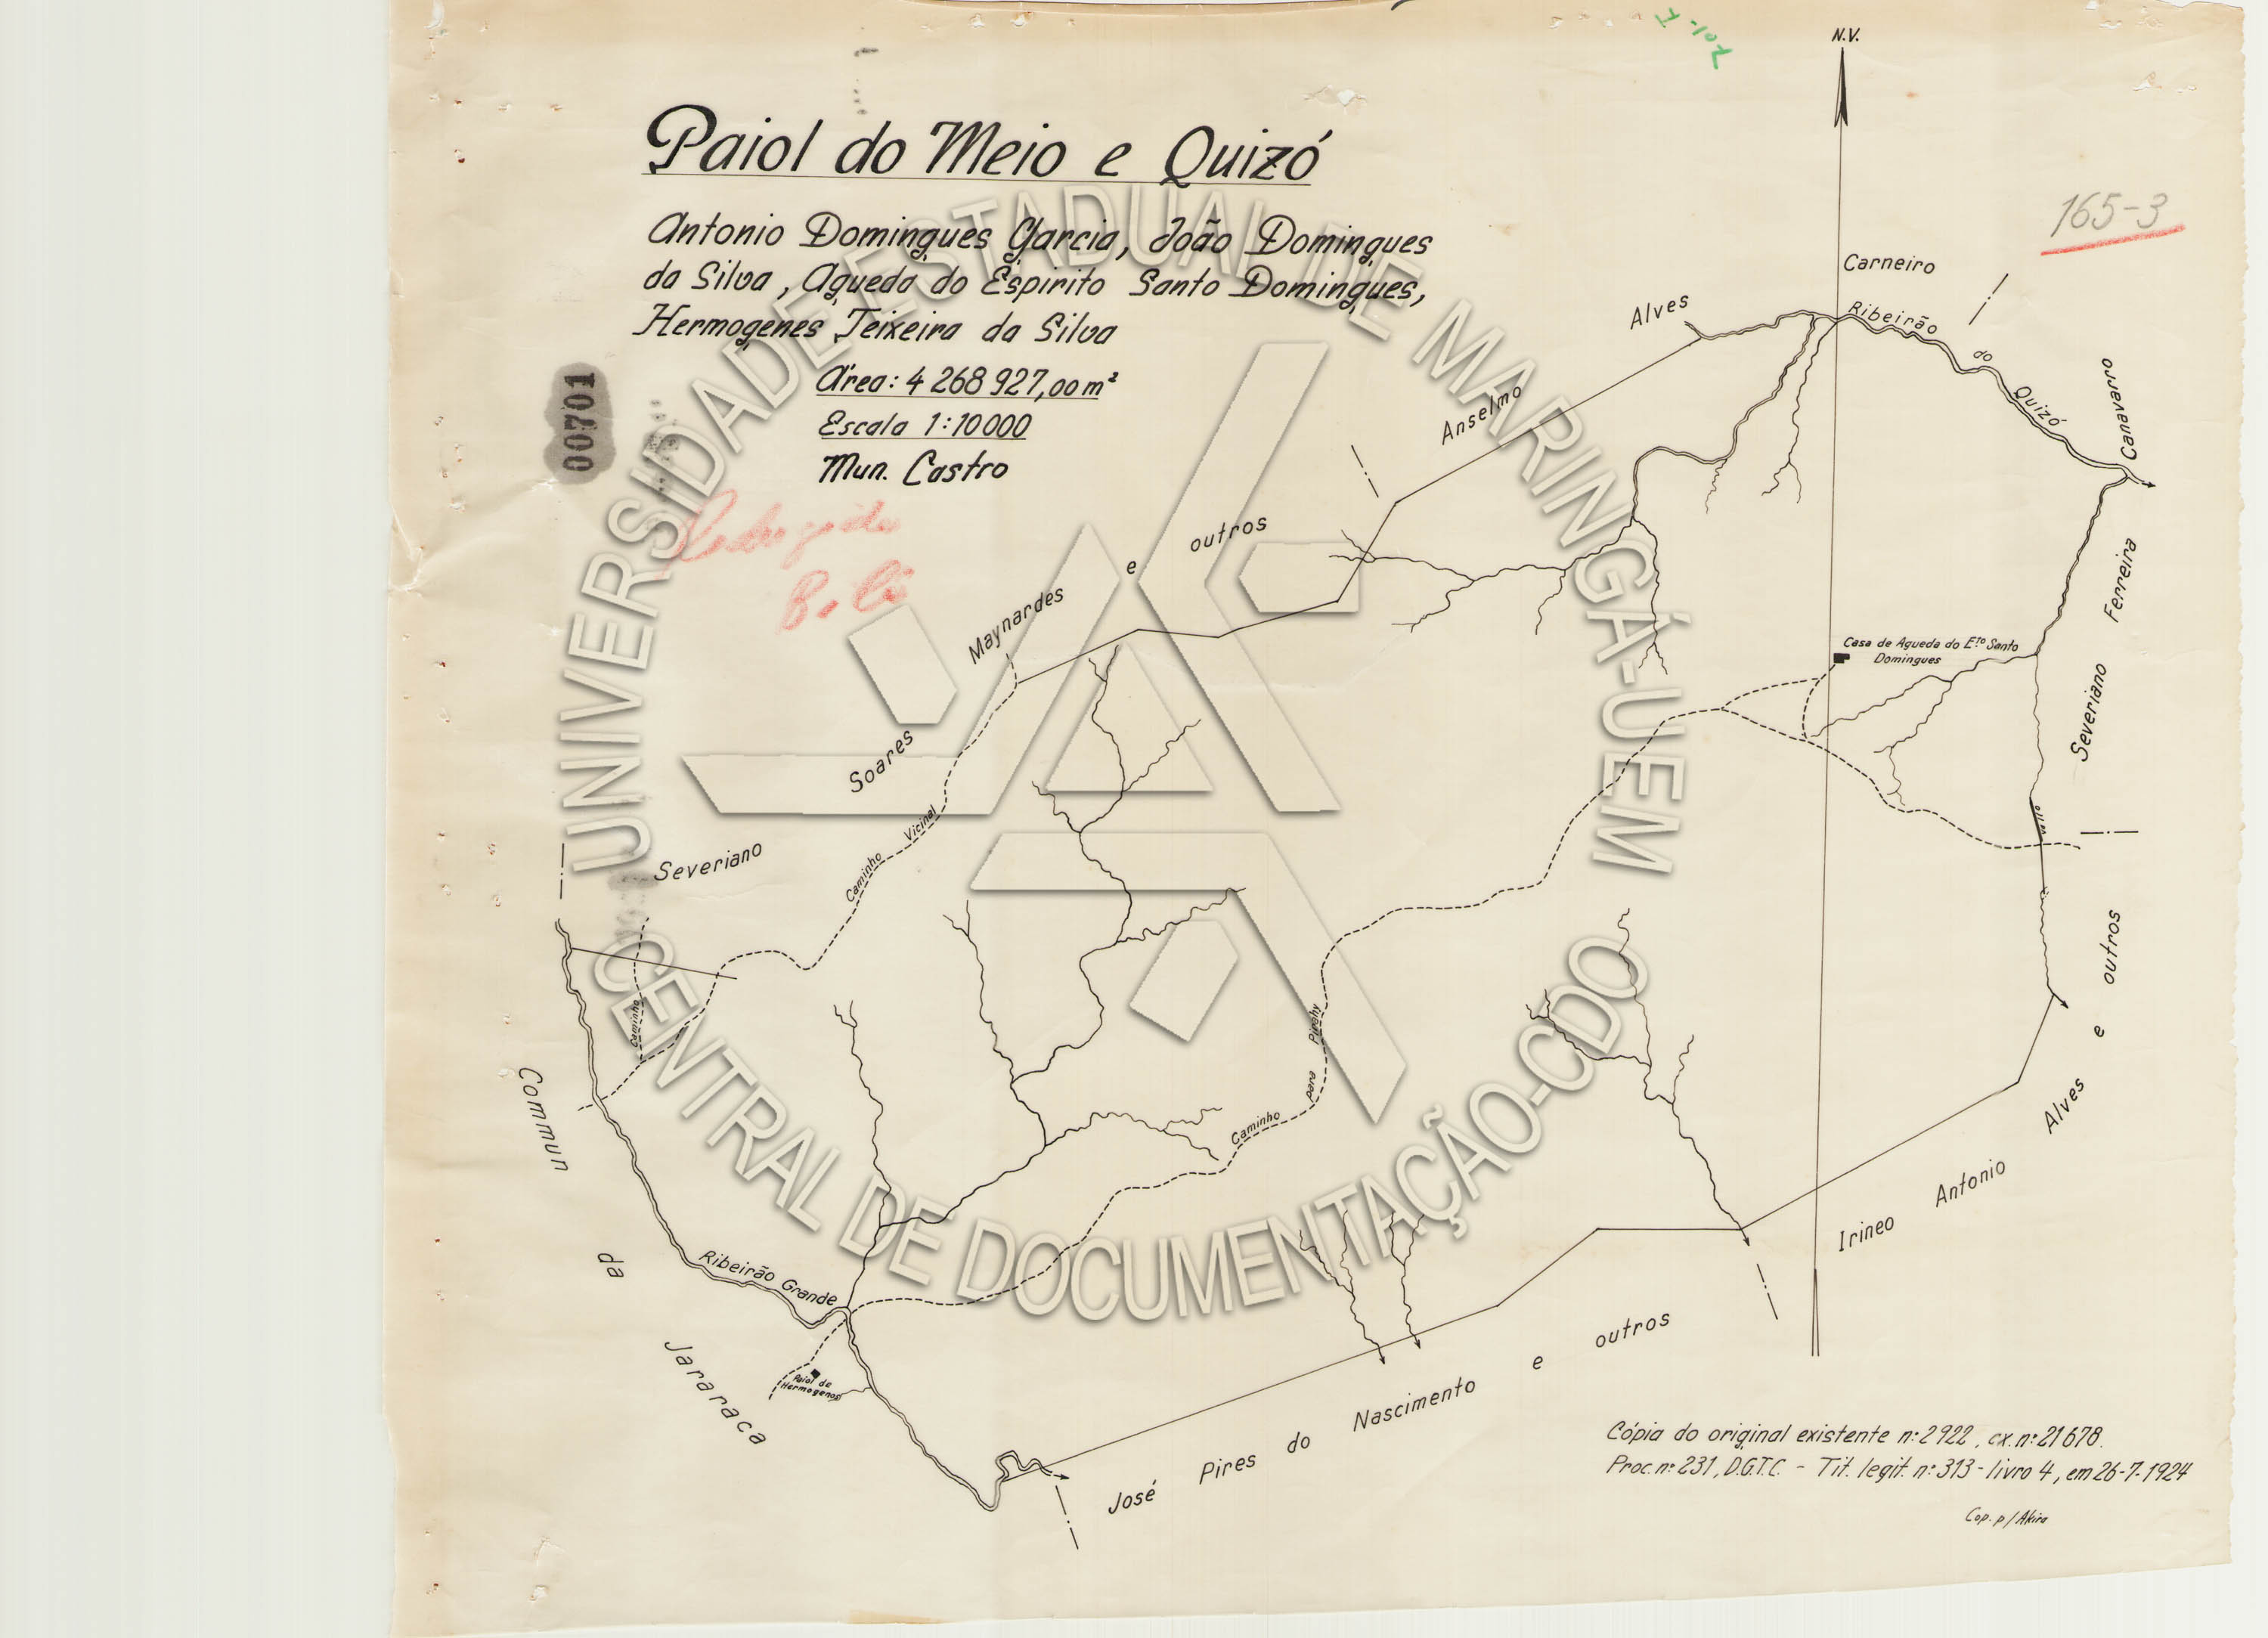 N.V.
Paiol do Meio e Quizó
Antonio Domingues Garcia, João Domingues
da Silva, Agueda do Espirito Santo Domingues,
Hermogenes Teixeira da Silva
Área: 4 268 927,00 m²
Escala 1:10 000
Mun. Castro
00701
165-3
Carneiro
Alves
Anselmo
outros
e
Maynardes
Soares
Severiano
Ribeirão do Quizó
Canavarro
Ferreira
Severiano
Casa de Agueda do E.to Santo
Domingues
Caminho Vicinal
Caminho
Caminho para Pirahy
vallo
outros
e
Alves
Antonio
Irineo
Commun
da
Jararaca
Ribeirão Grande
Paiol de
Hermogenes
José Pires do Nascimento e outros
Cópia do original existente nº 2922, cx. nº 21678.
Proc. nº 231, D.G.T.C. - Tit. legit. nº 313 - livro 4, em 26-7-1924
Cop. p/ Akira
UNIVERSIDADE ESTADUAL DE MARINGÁ-UEM
CENTRAL DE DOCUMENTAÇÃO-CDO